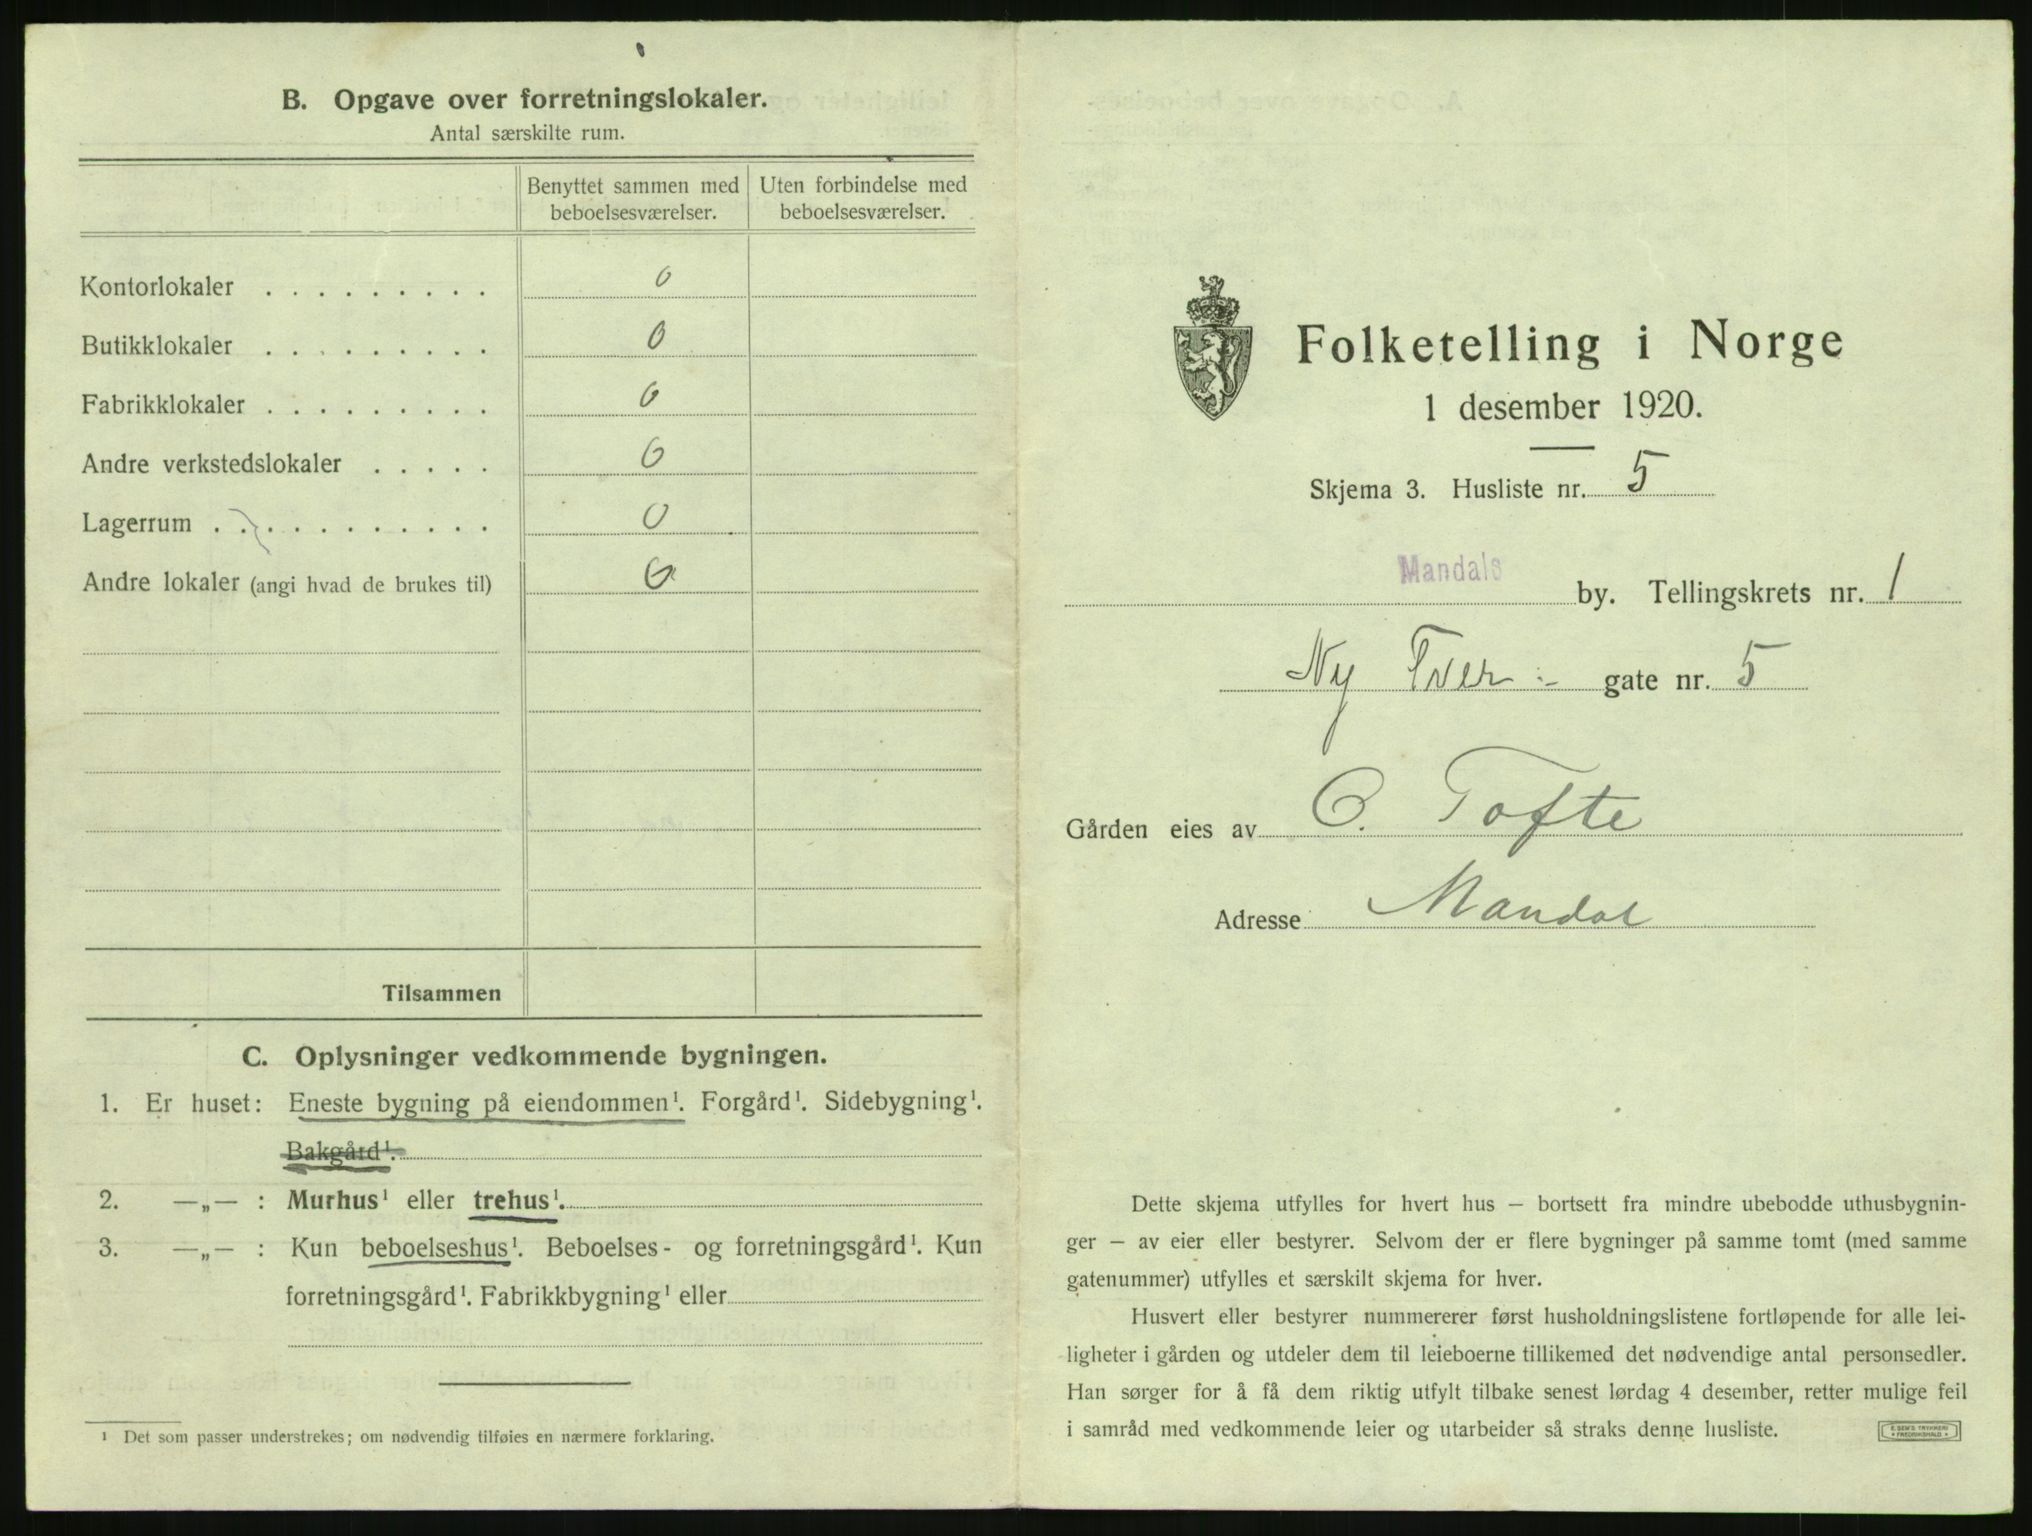 B. Opgave over forretningslokaler.
Antal særskilte rum.
Benyttet sammen med beboelsesværelser.
Uten forbindelse med beboelsesværelser.
Kontorlokaler . . . . . . . . . 0
Butikklokaler . . . . . . . . . 0
Fabrikklokaler . . . . . . . . . 0
Andre verkstedslokaler . . . . . 0
Lagerrum . . . . . . . . . . . 0
Andre lokaler (angi hvad de brukes til) 0
Tilsammen
C. Oplysninger vedkommende bygningen.
1. Er huset: Eneste bygning på eiendommen¹. Forgård¹. Sidebygning¹.
Bakgård¹.
2. —„— : Murhus¹ eller trehus¹.
3. —„— : Kun beboelseshus¹. Beboelses- og forretningsgård¹. Kun
forretningsgård¹. Fabrikkbygning¹ eller
¹ Det som passer understrekes; om nødvendig tilføies en nærmere forklaring.
Folketelling i Norge
1 desember 1920.
Skjema 3. Husliste nr. 5
Mandals by. Tellingskrets nr. 1
Ny Tver :- gate nr. 5
Gården eies av C. Tofte
Adresse Mandal
Dette skjema utfylles for hvert hus — bortsett fra mindre ubebodde uthusbygnin-
ger — av eier eller bestyrer. Selvom der er flere bygninger på samme tomt (med samme
gatenummer) utfylles et særskilt skjema for hver.
Husvert eller bestyrer nummererer først husholdningslistene fortløpende for alle lei-
ligheter i gården og utdeler dem til leieboerne tillikemed det nødvendige antal personsedler.
Han sørger for å få dem riktig utfylt tilbake senest lørdag 4 desember, retter mulige feil
i samråd med vedkommende leier og utarbeider så straks denne husliste.
E. SEM'S TRYKKERI
• FREDRIKSHALD •